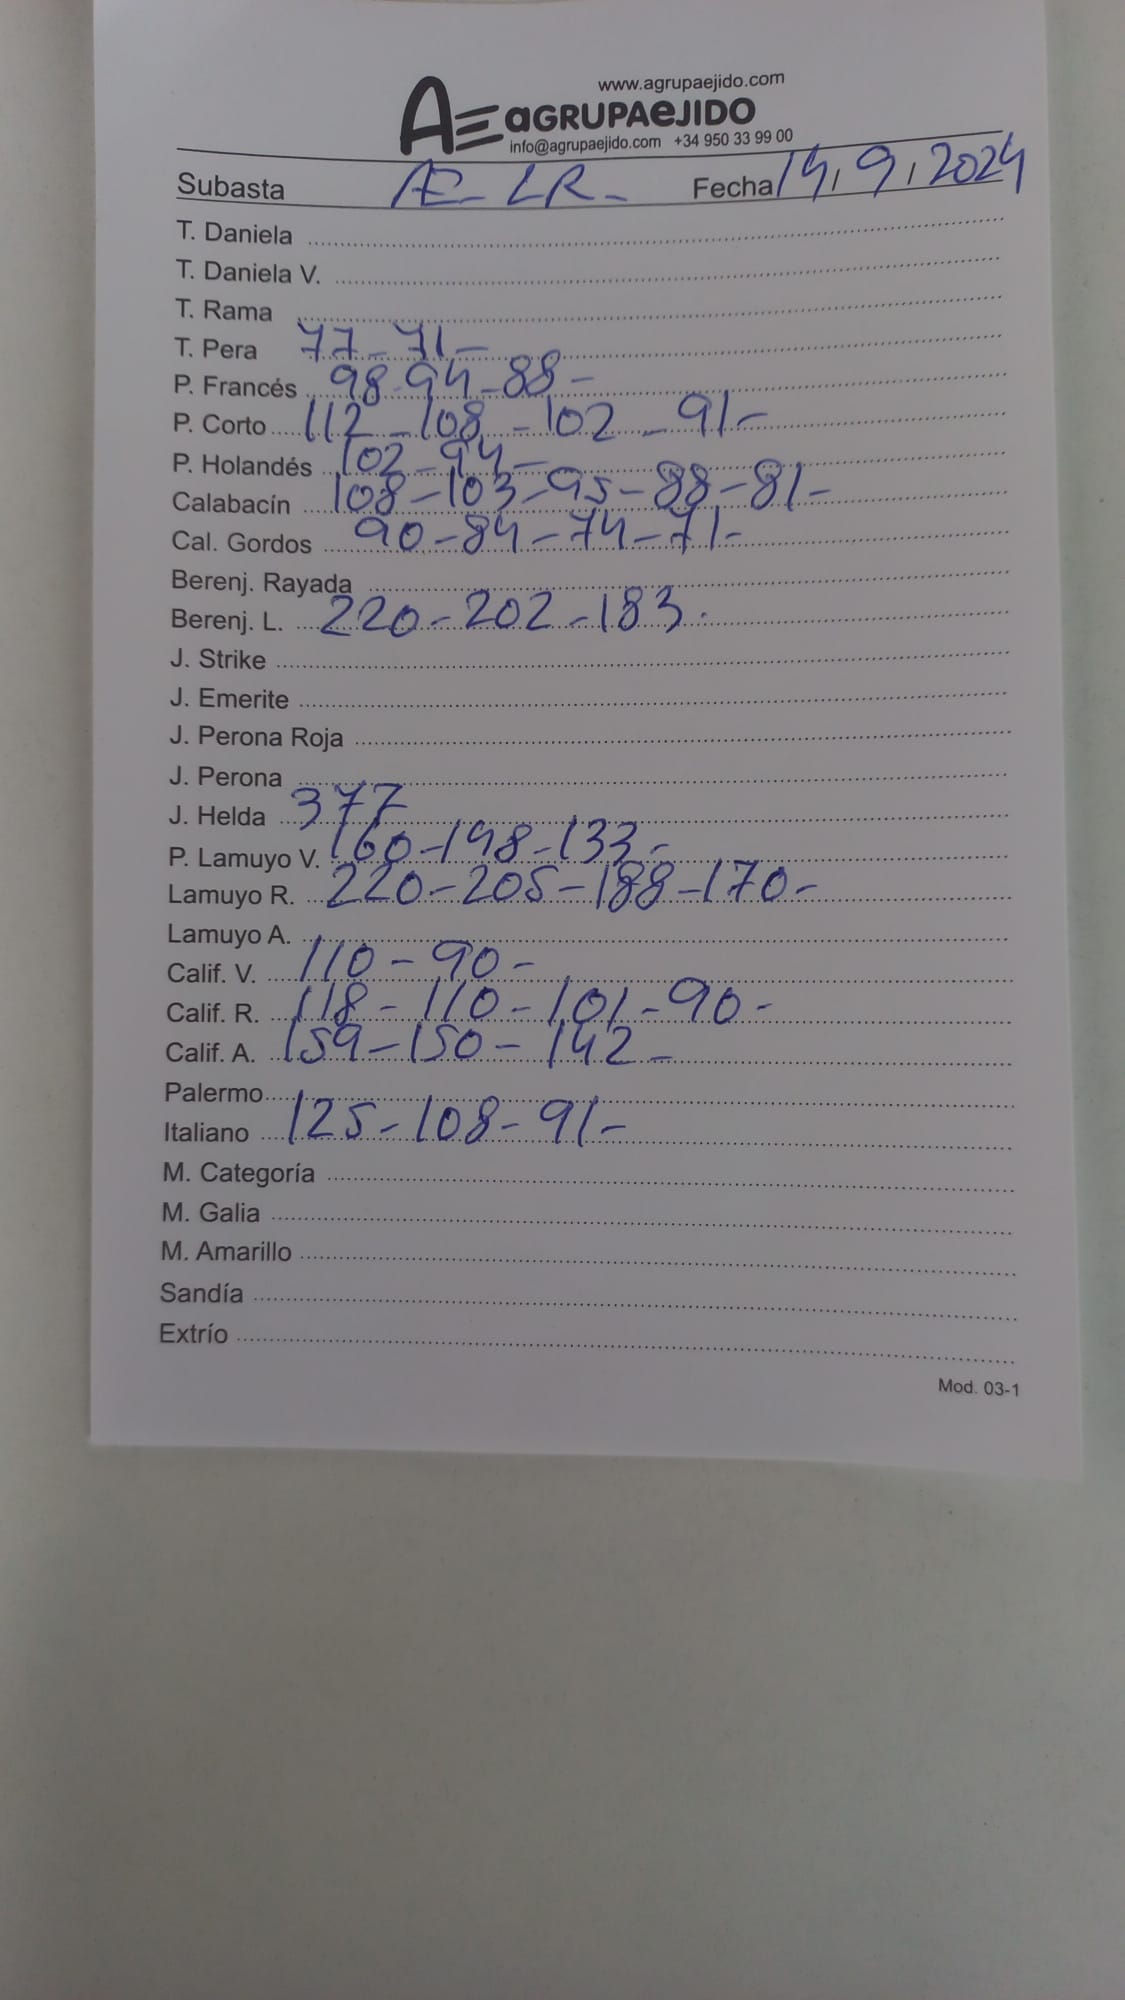 www.agrupaejido.com
AE aGRUPAeJIDO
info@agrupaejido.com +34 950 33 99 00
Subasta AE - LR - Fecha 14, 9, 2024
T. Daniela
T. Daniela V.
T. Rama
T. Pera 77 - 71 -
P. Francés 98 - 94 - 88 -
P. Corto 112 - 108 - 102 - 91 -
P. Holandés 102 - 94 -
Calabacín 108 - 103 - 95 - 88 - 81 -
Cal. Gordos 90 - 84 - 74 - 71 -
Berenj. Rayada
Berenj. L. 220 - 202 - 183.
J. Strike
J. Emerite
J. Perona Roja
J. Perona
J. Helda 377
P. Lamuyo V. 160 - 148 - 133 -
Lamuyo R. 220 - 205 - 188 - 170 -
Lamuyo A.
Calif. V. 110 - 90 -
Calif. R. 118 - 110 - 101 - 90 -
Calif. A. 159 - 150 - 142 -
Palermo
Italiano 125 - 108 - 91 -
M. Categoría
M. Galia
M. Amarillo
Sandía
Extrío
Mod. 03-1